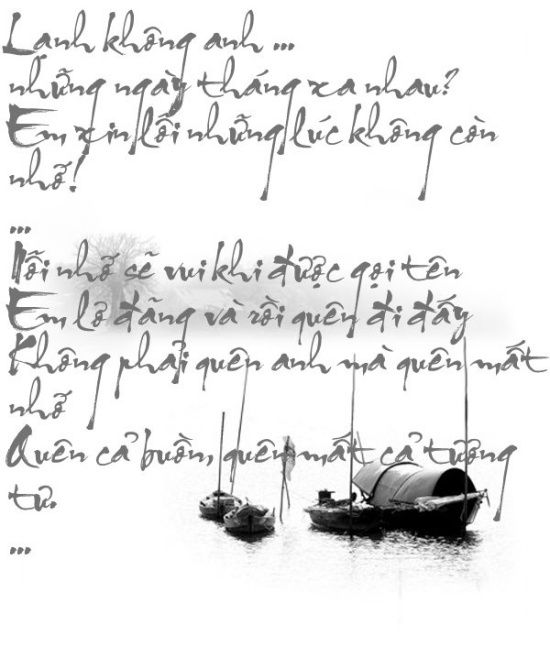 Lanh không anh ...
những ngày tháng xa nhau?
Em xin lỗi những lúc không còn
nhớ!
...
Nỗi nhớ sẽ vui khi được gọi tên
Em lơ đãng và rồi quên đi đấy
Không phải quên anh mà quên mất
nhớ
Quên cả buồn, quên mất cả tương
tư.
...